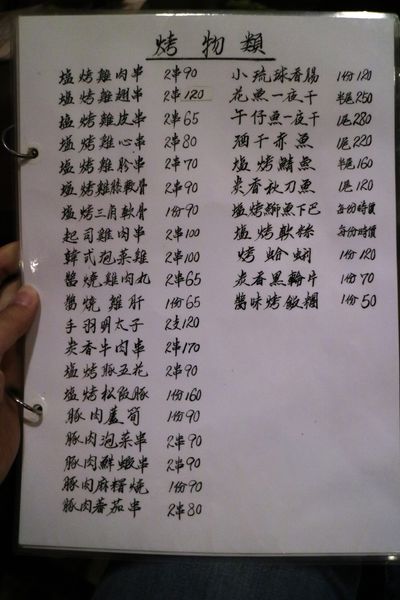 烤物類
塩烤雞肉串 2串90
塩烤雞翅串 2串120
塩烤雞皮串 2串65
塩烤雞心串 2串80
塩烤雞胗串 2串70
塩烤雞膝軟骨 2串90
塩烤三角軟骨 1份90
起司雞肉串 2串100
韓式泡菜雞 2串100
醬燒雞肉丸 2串65
醬燒雞肝 1份65
手羽明太子 2支120
炭香牛肉串 2串170
塩烤豚五花 2串90
塩烤松阪豚 1份160
豚肉蘆筍 1份90
豚肉泡菜串 2串90
豚肉鮮蝦串 2串90
豚肉麻糬燒 1份90
豚肉蕃茄串 2串80
小琉球香腸 1份120
花魚一夜干 半尾250
午仔魚一夜干 1尾280
酒干赤魚 1尾220
塩烤鯖魚 半尾160
炭香秋刀魚 1尾120
塩烤鰤魚下巴 每份時價
塩烤軟絲 每份時價
烤蛤蜊 1份120
炭香黑輪片 1份70
醬味烤飯糰 1份50